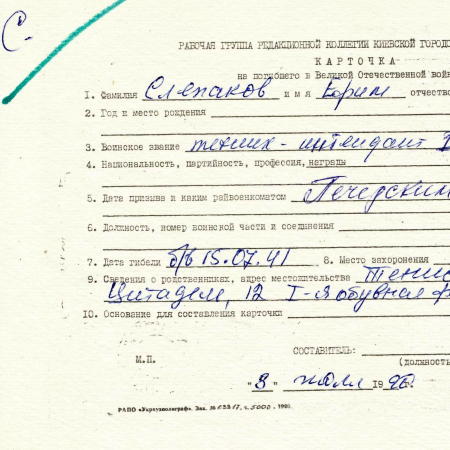 С.
РАБОЧАЯ ГРУППА РЕДАКЦИОННОЙ КОЛЛЕГИИ КИЕВСКОЙ ГОРОДС
КАРТОЧКА
на погибшего в Великой Отечественной войн
1. Фамилия Слепаков имя Борис отчеств
2. Год и место рождения
3. Воинское звание техник-интендант
4. Национальность, партийность, профессия, награды
5. Дата призыва и каким райвоенкоматом Печерским
6. Должность, номер воинской части и соединения
7. Дата гибели б/в 15.07.41 8. Место захоронения
9. Сведения о родственниках, адрес местожительства
Цитадель, 12 I-я обувная ф
10. Основание для составления карточки
СОСТАВИТЕЛЬ:
М.П. (должность
"3" июля 1990
РАПО «Укрвузполиграф». Зак. 5000. 1990.